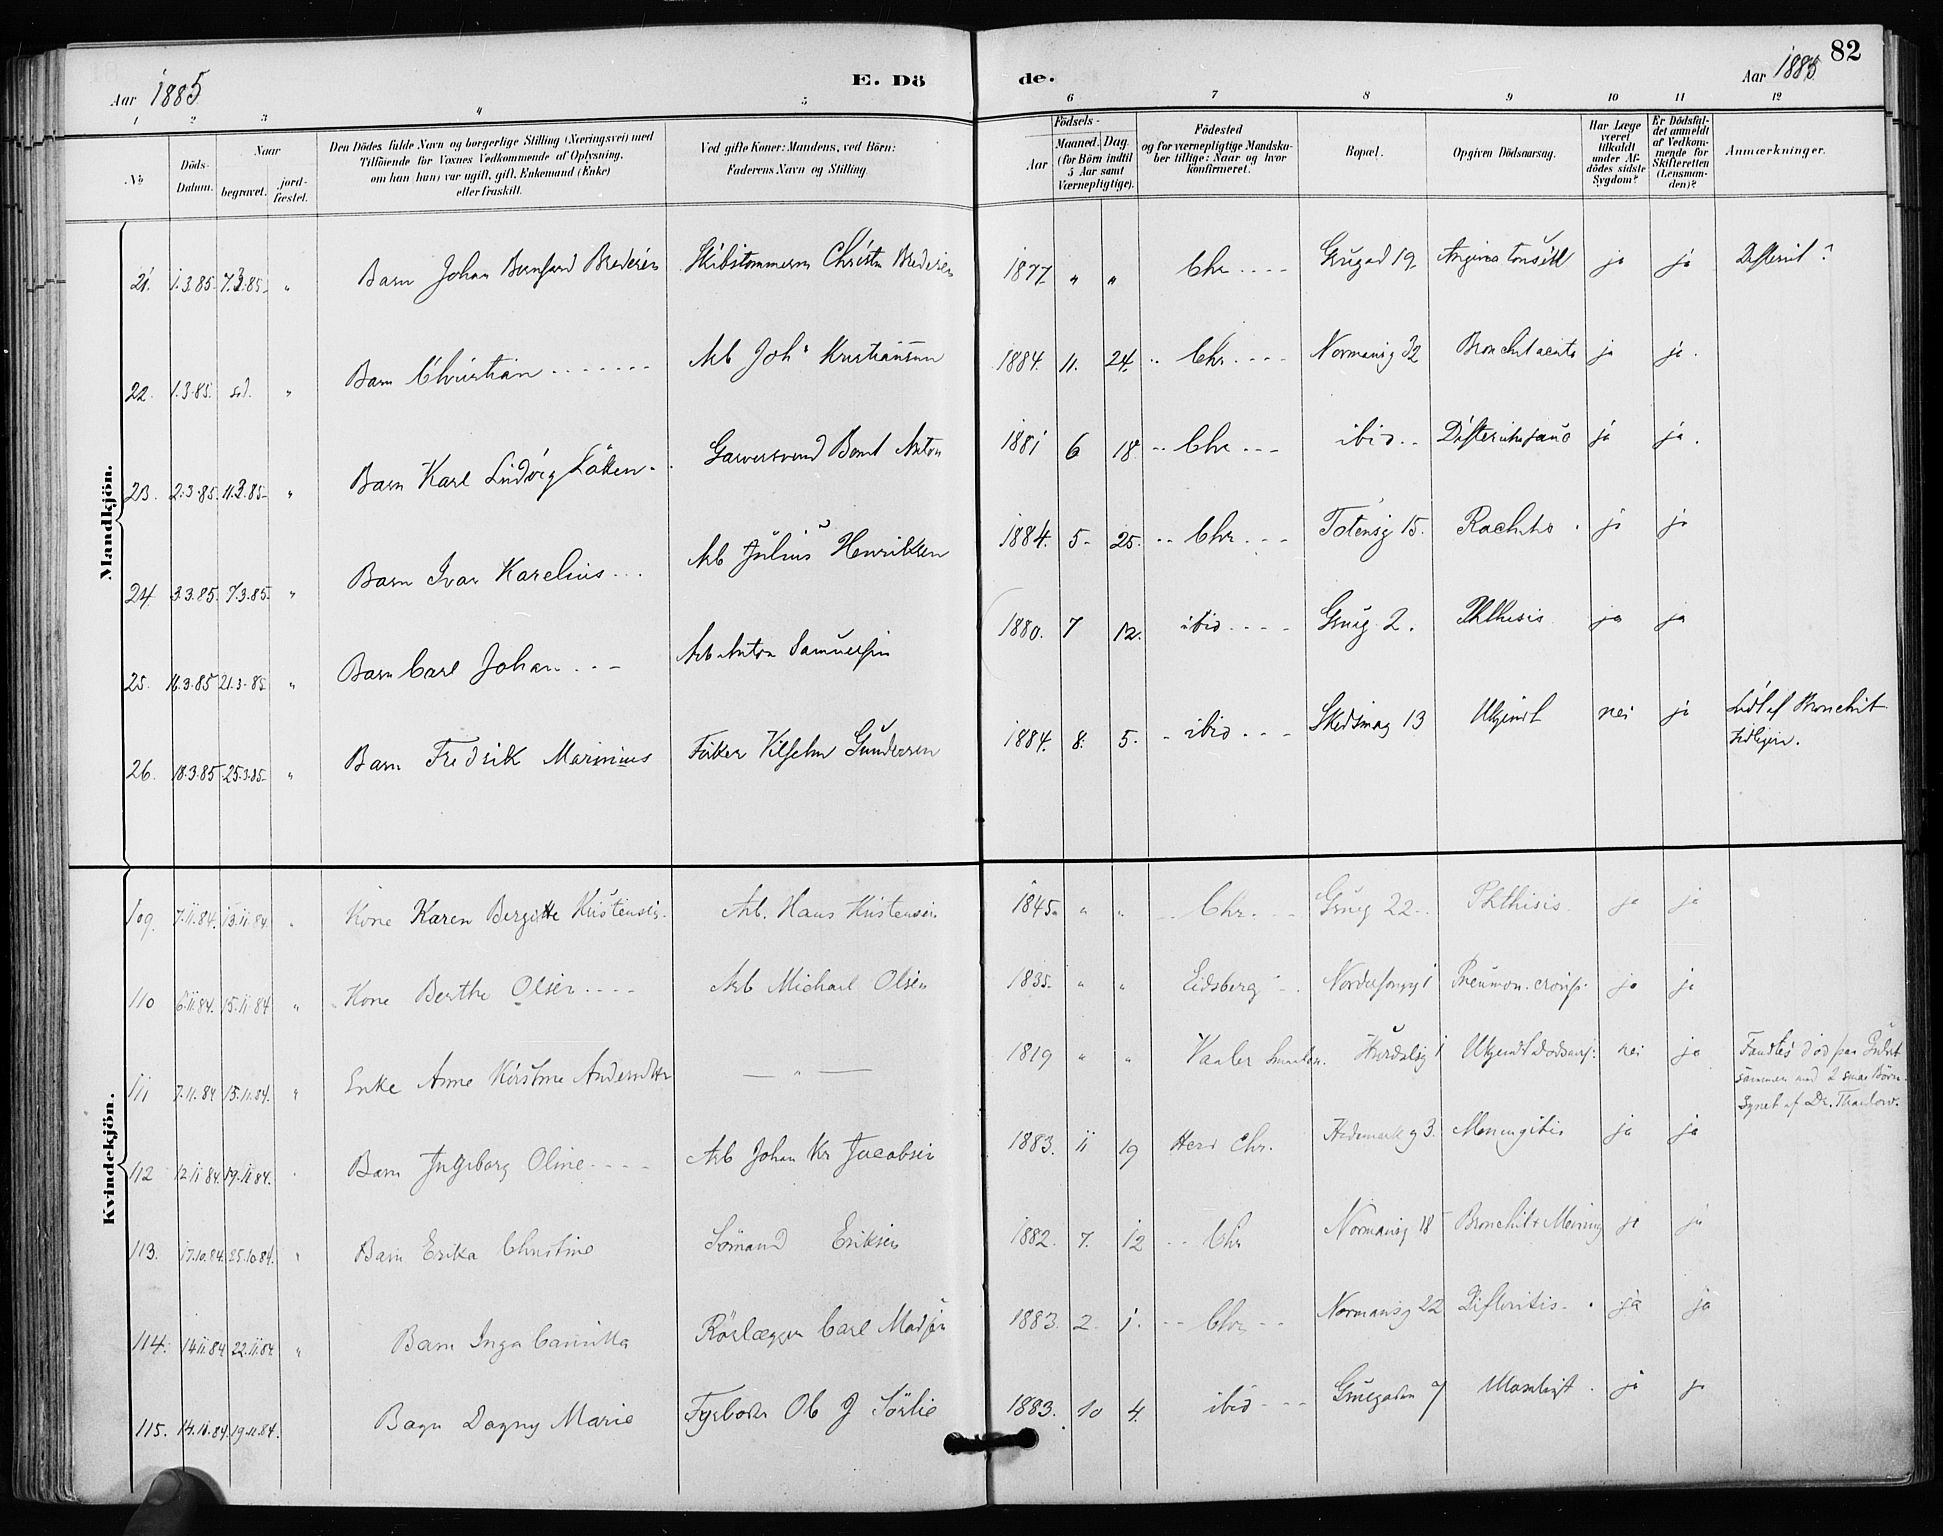 82
Aar 1885
E. Dö
de.
Aar 1885
1 2 3 4 5 6 7 8 9 10 11 12
No
Döds-Datum.
Naar
begravet.
jord-fæstet.
Den Dödes fulde Navn og borgerlige Stilling (Næringsvei) med
Tilföiende for Voxnes Vedkommende af Oplysning,
om han (hun) var ugift, gift, Enkemand (Enke)
eller fraskilt.
Ved gifte Koner: Mandens, ved Börn:
Faderens Navn og Stilling.
Födsels-
Aar
Maaned. Dag.
(for Börn indtil
5 Aar samt
Værnepligtige).
Födested
og for værnepligtige Mandska-
ber tillige: Naar og hvor
konfirmeret.
Bopæl.
Opgiven Dödsaarsag.
Har Læge
været
tilkaldt
under Af-
dödes sidste
Sygdom?
Er Dödsfal-
det anmeldt
af Vedkom-
mende for
Skifteretten
(Lensman-
den)?
Anmærkninger.
Mandkjön.
21. 1.3.85. 7.3.85. " Barn Johan Bernhard Bredesen Skibstømmerm Christn Bredesen 1877. " " Chr .... Grugad 19 Angina tonsill ja ja Difterit?
22. 1.3.85. " Barn Christian ....... Arb Johs Kristiansen 1884. 11. 24. .. Chr .... Normansg 32 Bronchit acuta ja ja.
23. 2.3.85. 11.3.85. " Barn Karl Ludvig Løken Garversvend Bernt Anton 1881 6 18 .. Chr ... ibid .. ja ja.
24 3.3.85. 7.3.85. " Barn Ivar Karelius ... Arb Julius Henriksen 1884. 5. 25. .. Chr ... Totensg 15. Rachitis ja ja
25. 16.3.85 21.3.85 " Barn Carl Johan ... Arb Anton Samuelsen 1880. 7 12. ibid .... Grug 2. Phthisis ja ja
26. 18.3.85 25.3.85. " Barn Fredrik Marinius Vilhelm Gundersen 1884. 8. 5. ibid ... Skedsmog 13 Ukjendt nei ja Lidt af Bronchit
tidligere.
Kvindekjön.
109. 7.11.84. 13.11.84 Kone Karen Bergitte Kristensen. Arb. Hans Kristensen 1845. " " Chr. Grug 22 Phthisis. ja ja
110 6.11.84. 15.11.84 " Kone Berthe Olsen .... Arb Michael Olsen 1835. " " Eidsberg Pneumon. ja ja
111 7.11.84 15.11.84. " Enke Anne Kirstine Andersdtr — " — 1819 " " Vaaler Smaalen. Hurdalsg 1 Ukjendt Dødsaars: nei ja Fandtes død paa Gulvet
sammen med 2 smaa Børn.
Synet af Dr. Thaulow.
112 12.11.84. 19.11.84. Barn Ingeborg Oline .... Arb Johan Kr Jacobsen 1883. 11 19 Herd Chr. Hedemarkg 3. Meningitis ja ja
113. 17.10.84. 25.10.84. " Barn Erika Christine Sømand Eriksen 1882. 7. 12 .. Chr Normansg 18 Bronchit + Mening ja ja
114. 14.11.84 22.11.84 " Barn Inga Camilla Rørlægger Carl Madsen 1883. 2. 1. .. Chr .. Normansg 22 Difteritis. ja ja
115. 14.11.84. 19.11.84. Barn Dagny Marie Fyrbøder Ole J Sørlie 1883. 10 4. ibid ... Gruegaden 7 ja ja